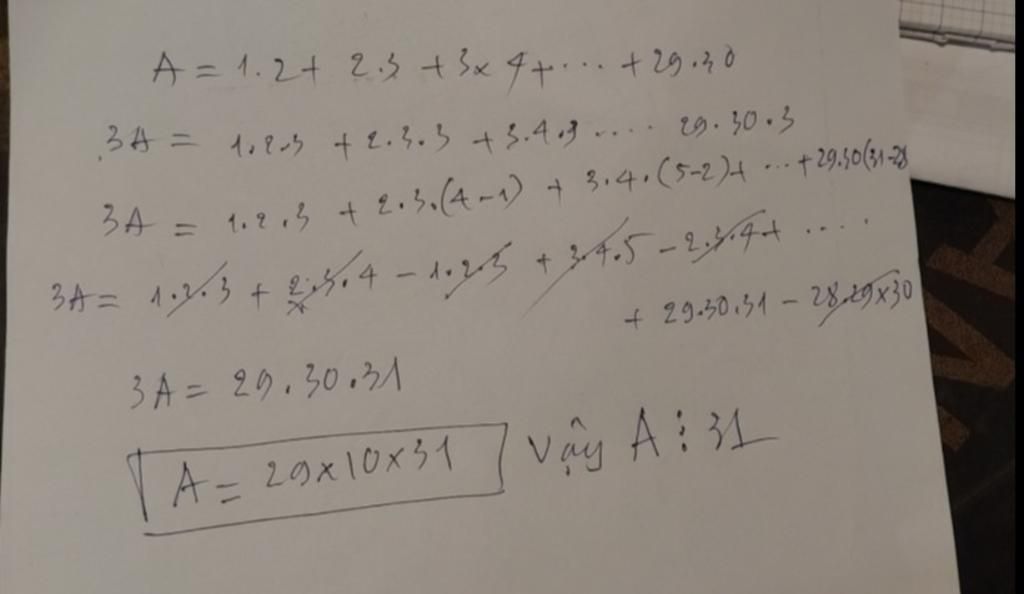 A = 1.2 + 2.3 + 3x4 + ... + 29.30
3A = 1.2.3 + 2.3.3 + 3.4.3 .... 29.30.3
3A = 1.2.3 + 2.3.(4-1) + 3.4.(5-2) + ... + 29.30(31-28
3A = 1.2.3 + 2.3.4 - 1.2.3 + 3.4.5 - 2.3.4 + ....
+ 29.30.31 - 28.29x30
3A = 29.30.31
A = 29x10x31 Vậy A ⋮ 31